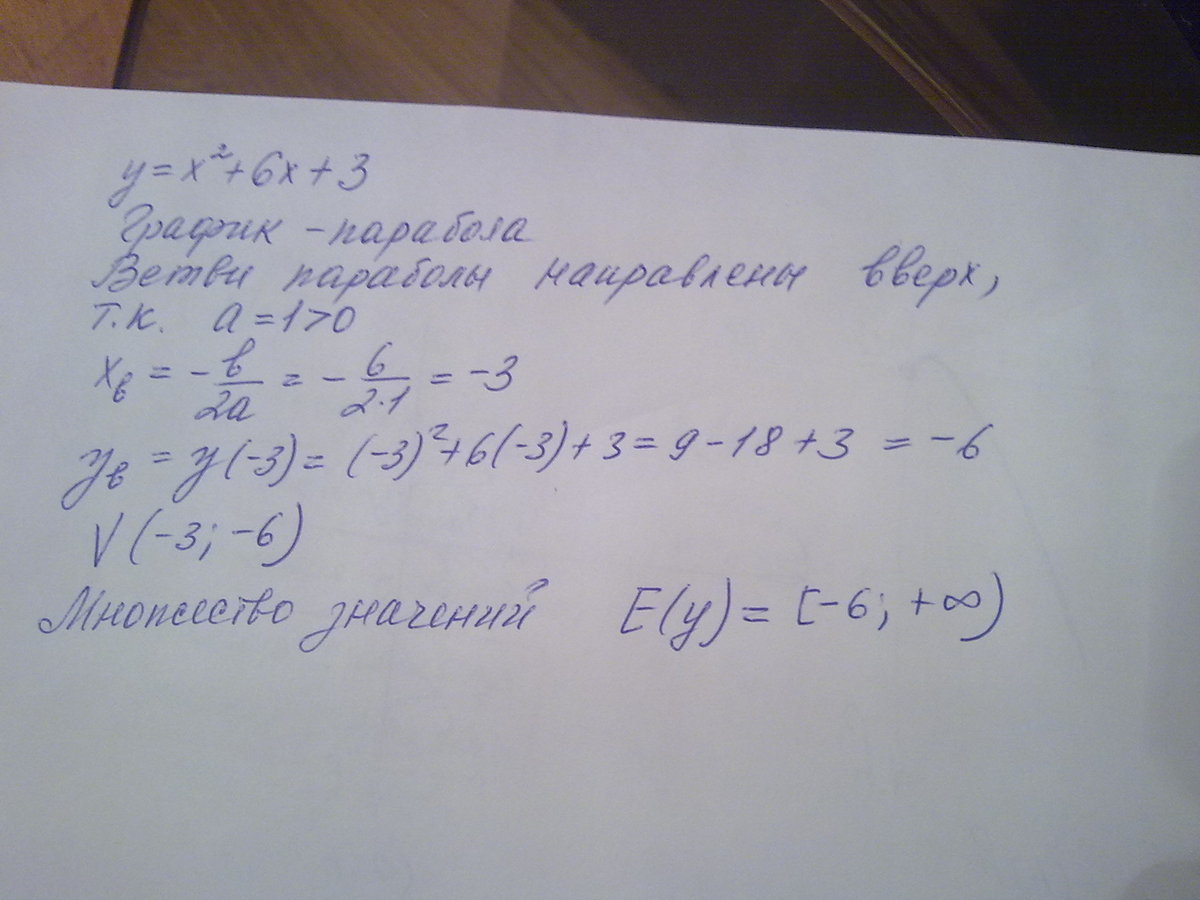 y = x² + 6x + 3
График - парабола
Ветви параболы направлены вверх,
т.к. a = 1 > 0
xв = - в/2a = - 6/2·1 = -3
yв = y(-3) = (-3)² + 6(-3) + 3 = 9 - 18 + 3 = -6
V (-3; -6)
Множество значений E(y) = [-6; +∞)